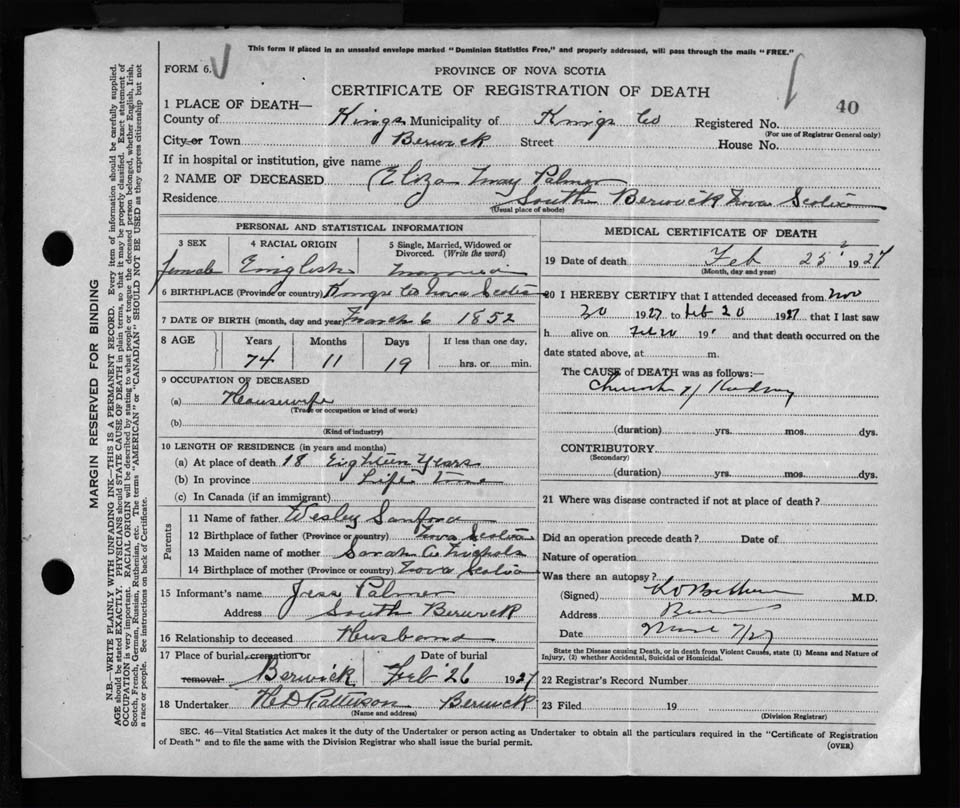 This form if placed in an unsealed envelope marked "Dominion Statistics Free," and properly addressed, will pass through the mails "FREE."
FORM 6.
PROVINCE OF NOVA SCOTIA
CERTIFICATE OF REGISTRATION OF DEATH
40
1 PLACE OF DEATH—
County of Kings Municipality of Kings Co Registered No.
(For use of Registrar General only)
City or Town Berwick Street House No.
If in hospital or institution, give name
2 NAME OF DECEASED Eliza May Palmer
Residence South Berwick Nova Scotia
(Usual place of abode)
PERSONAL AND STATISTICAL INFORMATION
3 SEX 4 RACIAL ORIGIN 5 Single, Married, Widowed or Divorced. (Write the word)
female English Married
6 BIRTHPLACE (Province or country) Kings Co Nova Scotia
7 DATE OF BIRTH (month, day and year) March 6 1852
8 AGE Years Months Days If less than one day,
74 11 19 hrs. or min.
9 OCCUPATION OF DECEASED
(a) Housewife
(Trade or occupation or kind of work)
(b)
(Kind of industry)
10 LENGTH OF RESIDENCE (in years and months)
(a) At place of death 18 Eighteen Years
(b) In province Life time
(c) In Canada (if an immigrant)
Parents
11 Name of father Wesley Sanford
12 Birthplace of father (Province or country) Nova Scotia
13 Maiden name of mother Sarah C Nichols
14 Birthplace of mother (Province or country) Nova Scotia
15 Informant's name Jess Palmer
Address South Berwick
16 Relationship to deceased Husband
17 Place of burial, cremation or removal. Date of burial
Berwick Feb 26 1927
18 Undertaker H D Pattison Berwick
(Name and address)
MEDICAL CERTIFICATE OF DEATH
19 Date of death Feb 25 1927
(Month, day and year)
20 I HEREBY CERTIFY that I attended deceased from Nov
20 1927 to Feb 20 1927 that I last saw
h alive on Feb 20 19 and that death occurred on the
date stated above, at m.
The CAUSE of DEATH was as follows:—
(duration) yrs. mos. dys.
CONTRIBUTORY
(Secondary)
(duration) yrs. mos. dys.
21 Where was disease contracted if not at place of death?
Did an operation precede death? Date of
Nature of operation
Was there an autopsy?
(Signed) M.D.
Address
Date 7/27
State the Disease causing Death, or in death from Violent Causes, state (1) Means and Nature of
Injury, (2) whether Accidental, Suicidal or Homicidal.
22 Registrar's Record Number
23 Filed 19
(Division Registrar)
SEC. 46—Vital Statistics Act makes it the duty of the Undertaker or person acting as Undertaker to obtain all the particulars required in the "Certificate of Registration
of Death" and to file the same with the Division Registrar who shall issue the burial permit.
(OVER)
MARGIN RESERVED FOR BINDING
N.B.—WRITE PLAINLY WITH UNFADING INK—THIS IS A PERMANENT RECORD. Every item of information should be carefully supplied.
AGE should be stated EXACTLY. PHYSICIANS should STATE CAUSE OF DEATH in plain terms, so that it may be properly classified. Exact statement of
OCCUPATION is very important. RACIAL ORIGIN will be described by stating to what people or tongue the deceased person belonged, whether English, Irish,
Scotch, French, German, Russian, Ruthenian, etc. The terms "AMERICAN" or "CANADIAN" SHOULD NOT BE USED as they express citizenship but not
a race or people. See instructions on back of Certificate.